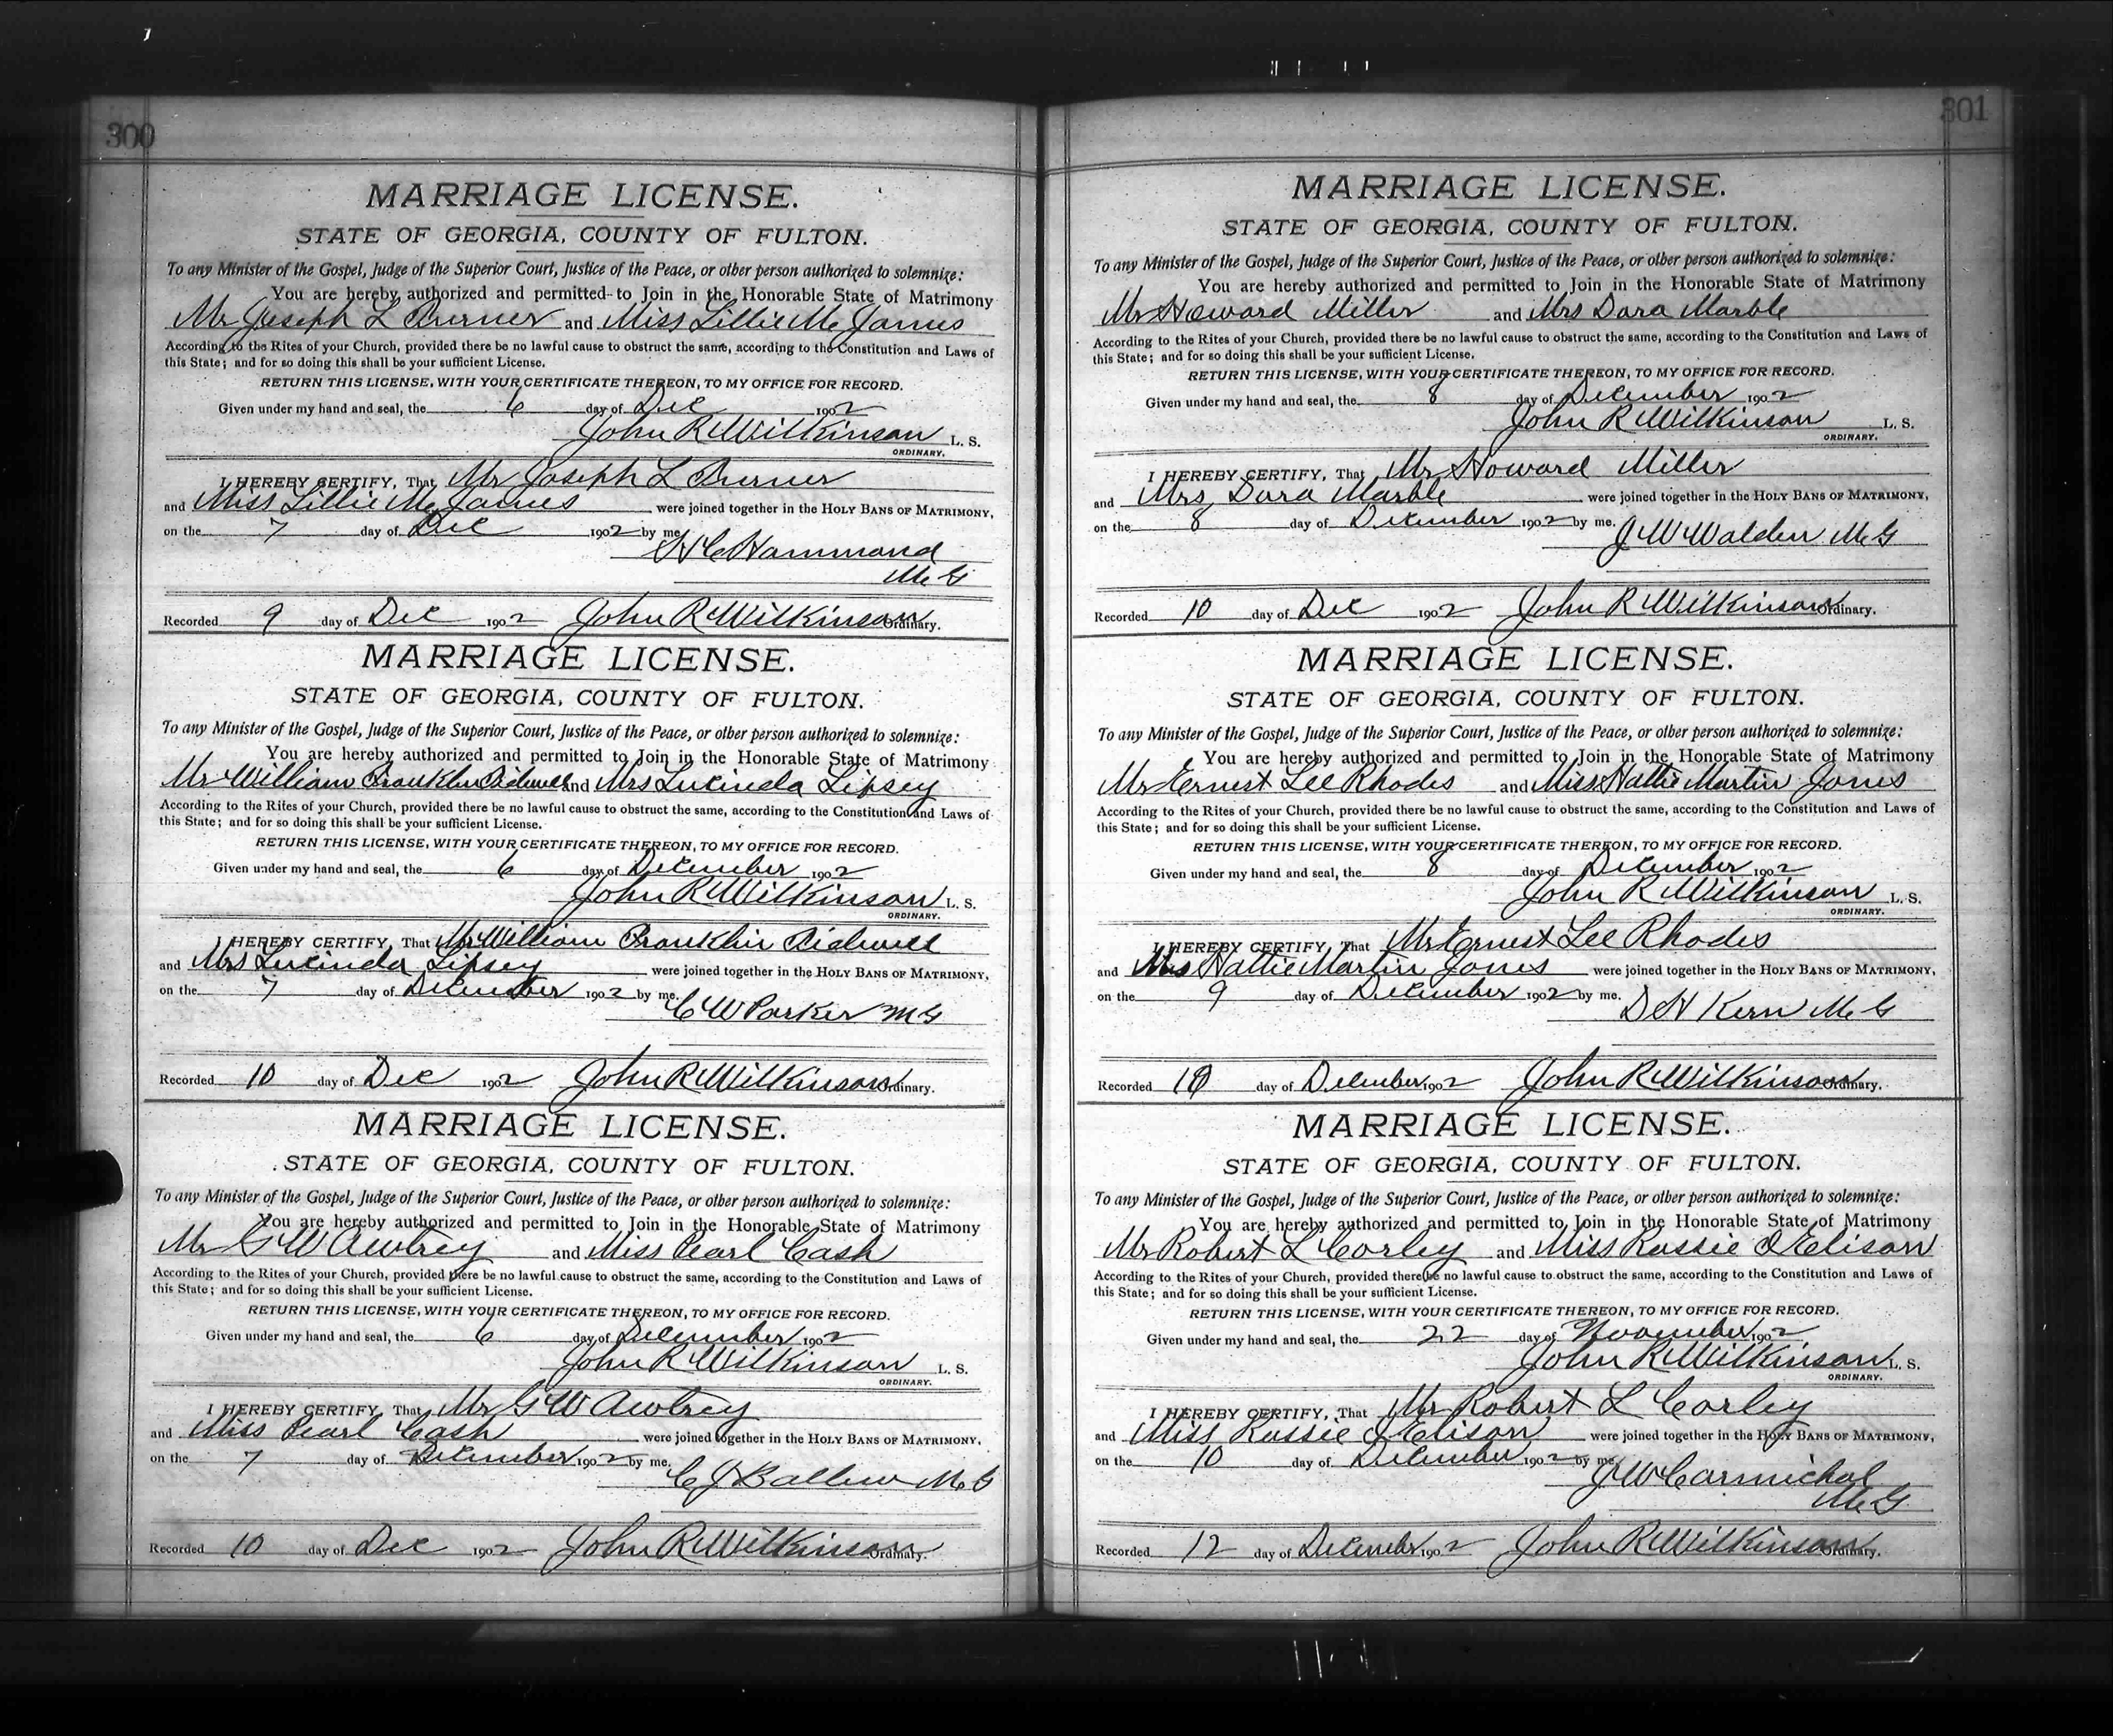 300
MARRIAGE LICENSE.
STATE OF GEORGIA, COUNTY OF FULTON.
To any Minister of the Gospel, Judge of the Superior Court, Justice of the Peace, or other person authorized to solemnize:
You are hereby authorized and permitted to Join in the Honorable State of Matrimony
Mr Joseph L Turner and Miss Lillie M James
According to the Rites of your Church, provided there be no lawful cause to obstruct the same, according to the Constitution and Laws of
this State; and for so doing this shall be your sufficient License.
RETURN THIS LICENSE, WITH YOUR CERTIFICATE THEREON, TO MY OFFICE FOR RECORD.
Given under my hand and seal, the 6 day of Dec 1902
John R Wilkinson L. S.
ORDINARY.
I HEREBY CERTIFY, That Mr Joseph L Turner
and Miss Lillie M James were joined together in the HOLY BANS OF MATRIMONY,
on the 7 day of Dec 1902 by me.
H C Hammond
M G
Recorded 9 day of Dec 1902 John R Wilkinson Ordinary.
MARRIAGE LICENSE.
STATE OF GEORGIA, COUNTY OF FULTON.
To any Minister of the Gospel, Judge of the Superior Court, Justice of the Peace, or other person authorized to solemnize:
You are hereby authorized and permitted to Join in the Honorable State of Matrimony
Mr William Franklin Tidwell and Mrs Lucinda Lipsey
According to the Rites of your Church, provided there be no lawful cause to obstruct the same, according to the Constitution and Laws of
this State; and for so doing this shall be your sufficient License.
RETURN THIS LICENSE, WITH YOUR CERTIFICATE THEREON, TO MY OFFICE FOR RECORD.
Given under my hand and seal, the 6 day of December 1902
John R Wilkinson L. S.
ORDINARY.
I HEREBY CERTIFY, That Mr William Franklin Tidwell
and Mrs Lucinda Lipsey were joined together in the HOLY BANS OF MATRIMONY,
on the 7 day of December 1902 by me.
C W Parker M G
Recorded 10 day of Dec 1902 John R Wilkinson Ordinary.
MARRIAGE LICENSE.
STATE OF GEORGIA, COUNTY OF FULTON.
To any Minister of the Gospel, Judge of the Superior Court, Justice of the Peace, or other person authorized to solemnize:
You are hereby authorized and permitted to Join in the Honorable State of Matrimony
Mr G W Awtrey and Miss Pearl Cash
According to the Rites of your Church, provided there be no lawful cause to obstruct the same, according to the Constitution and Laws of
this State; and for so doing this shall be your sufficient License.
RETURN THIS LICENSE, WITH YOUR CERTIFICATE THEREON, TO MY OFFICE FOR RECORD.
Given under my hand and seal, the 6 day of December 1902
John R Wilkinson L. S.
ORDINARY.
I HEREBY CERTIFY, That Mr G W Awtrey
and Miss Pearl Cash were joined together in the HOLY BANS OF MATRIMONY,
on the 7 day of December 1902 by me.
C J Ballew M G
Recorded 10 day of Dec 1902 John R Wilkinson Ordinary.
301
MARRIAGE LICENSE.
STATE OF GEORGIA, COUNTY OF FULTON.
To any Minister of the Gospel, Judge of the Superior Court, Justice of the Peace, or other person authorized to solemnize:
You are hereby authorized and permitted to Join in the Honorable State of Matrimony
Mr Howard Miller and Mrs Dora Marble
According to the Rites of your Church, provided there be no lawful cause to obstruct the same, according to the Constitution and Laws of
this State; and for so doing this shall be your sufficient License.
RETURN THIS LICENSE, WITH YOUR CERTIFICATE THEREON, TO MY OFFICE FOR RECORD.
Given under my hand and seal, the 8 day of December 1902
John R Wilkinson L. S.
ORDINARY.
I HEREBY CERTIFY, That Mr Howard Miller
and Mrs Dora Marble were joined together in the HOLY BANS OF MATRIMONY,
on the 8 day of December 1902 by me.
J W Walden M G
Recorded 10 day of Dec 1902 John R Wilkinson Ordinary.
MARRIAGE LICENSE.
STATE OF GEORGIA, COUNTY OF FULTON.
To any Minister of the Gospel, Judge of the Superior Court, Justice of the Peace, or other person authorized to solemnize:
You are hereby authorized and permitted to Join in the Honorable State of Matrimony
Mr Ernest Lee Rhodes and Miss Hattie Martin Jones
According to the Rites of your Church, provided there be no lawful cause to obstruct the same, according to the Constitution and Laws of
this State; and for so doing this shall be your sufficient License.
RETURN THIS LICENSE, WITH YOUR CERTIFICATE THEREON, TO MY OFFICE FOR RECORD.
Given under my hand and seal, the 8 day of December 1902
John R Wilkinson L. S.
ORDINARY.
I HEREBY CERTIFY, That Mr Ernest Lee Rhodes
and Hattie Martin Jones were joined together in the HOLY BANS OF MATRIMONY,
on the 9 day of December 1902 by me.
D H Kern M G
Recorded 10 day of December 1902 John R Wilkinson Ordinary.
MARRIAGE LICENSE.
STATE OF GEORGIA, COUNTY OF FULTON.
To any Minister of the Gospel, Judge of the Superior Court, Justice of the Peace, or other person authorized to solemnize:
You are hereby authorized and permitted to Join in the Honorable State of Matrimony
Mr Robert L Corley and Miss Rossie Elison
According to the Rites of your Church, provided there be no lawful cause to obstruct the same, according to the Constitution and Laws of
this State; and for so doing this shall be your sufficient License.
RETURN THIS LICENSE, WITH YOUR CERTIFICATE THEREON, TO MY OFFICE FOR RECORD.
Given under my hand and seal, the 22 day of November 1902
John R Wilkinson L. S.
ORDINARY.
I HEREBY CERTIFY, That Mr Robert L Corley
and Miss Rossie Elison were joined together in the HOLY BANS OF MATRIMONY,
on the 10 day of December 1902 by me
J W Carmichal
M G
Recorded 12 day of December 1902 John R Wilkinson Ordinary.